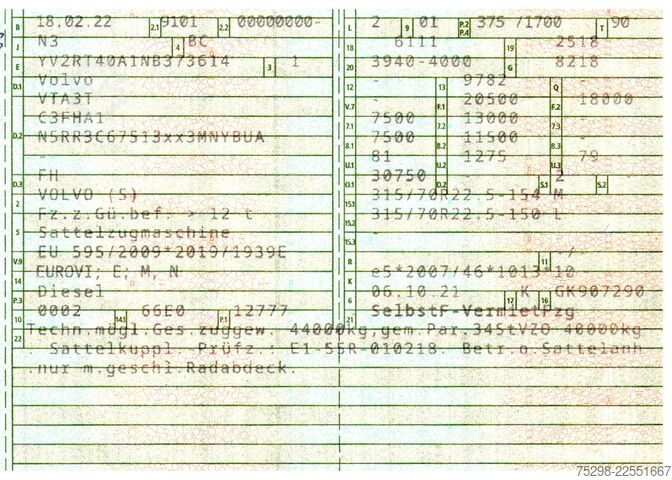 B 18.02.22 2.1 9101 2.2 00000000-
J N3 4 BC
E YV2RT40A1NB373614 3 1
D.1 Volvo
VTA3T
C3FHA1
D.2 N5RR3C67513xx3MNYBUA
-
D.3 FH
2 VOLVO (S)
Fz.z.Gü.bef. > 12 t
5 Sattelzugmaschine
V.9 EU 595/2009*2019/1939E
14 EUROVI; E; M, N
P.3 Diesel
10 0002 14.1 66E0 P.1 12777
22 Techn.mögl.Ges.zuggew. 44000kg,gem.Par.34StVZO 40000kg
Sattelkuppl. Prüfz.: E1-55R-010218. Betr.o.Sattelanh
.nur m.geschl.Radabdeck.
L 2 9 01 P.2 P.4 375 /1700 T 90
18 6111 19 2518
20 3940-4000 G 8218
12 - 13 9782 Q -
V.7 - F.1 20500 F.2 18000
7.1 7500 7.2 13000 7.3 -
8.1 7500 8.2 11500 8.3 -
U.1 81 U.2 1275 U.3 79
O.1 30750 O.2 - S.1 2 S.2
15.1 315/70R22.5-154 M
15.2 315/70R22.5-150 L
15.3 -
R - 11 -/-
K e5*2007/46*1013*10
6 06.10.21 17 K 16 GK907290
21 SelbstF-VermietPzg
75298-22551667